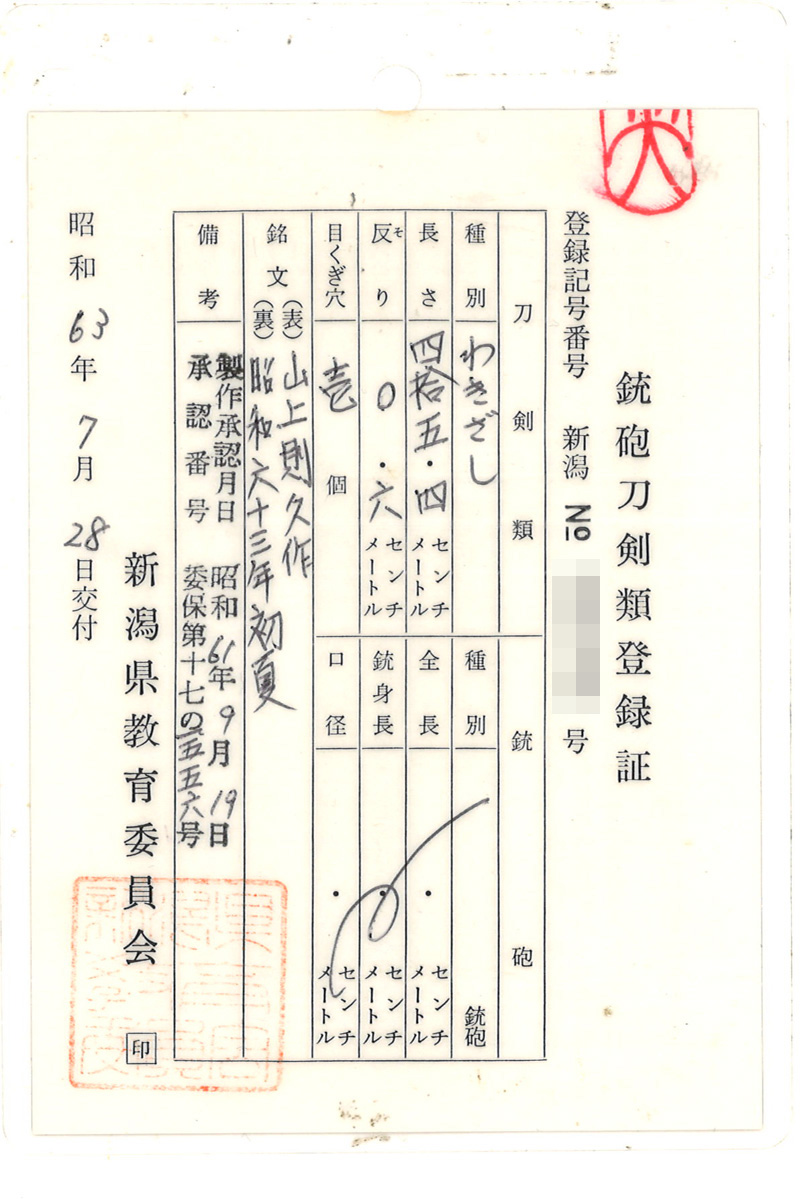 銃砲刀剣類登録証
登録記号番号 新潟 No 号
刀剣類
種別 わきざし
長さ 四拾五・四 センチメートル
反り 〇・六 センチメートル
そ
目くぎ穴 壱個
銘文 (表) 山上則久作
(裏) 昭和六十三年初夏
備考 製作承認月日 昭和61年9月19日
承認番号 委保第十七の二五五六号
銃砲
種別 銃砲
全長 ・ センチメートル
銃身長 ・ センチメートル
口径 ・ センチメートル
昭和63年7月28日交付
新潟県教育委員会 印